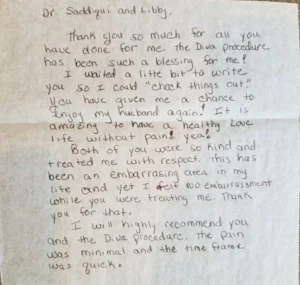 Dr. Saddiqui and Libby,
Thank you so much for all you
have done for me. The Diva Procedure
has been such a blessing for me!
I waited a litte bit to write
you so I could "check things out."
You have given me a chance to
enjoy my husband again! It is
amazing to have a healthy love
life without pain! yea!
Both of you were so kind and
treated me with respect. This has
been an embarrasing area in my
life and yet I felt no embarrassment
while you were treating me. Thank
you for that.
I will highly recommend you
and the Diva procedure. The pain
was minimal and the time frame
was quick.